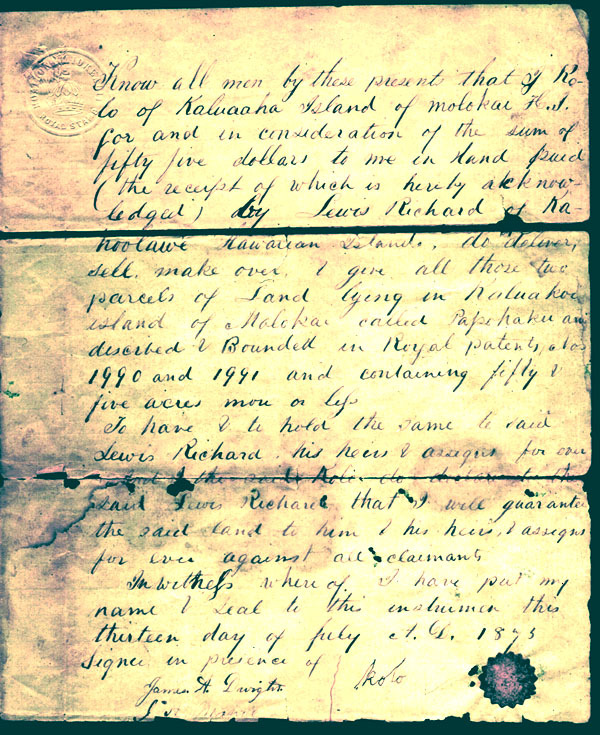 Know all men by these presents that I Ko-
lo of Kaluaaha Island of Molokai H.I.
for and in consideration of the sum of
fifty five dollars to me in hand paid
(the receipt of which is hereby acknow-
ledged) by Lewis Richard of Ka-
hoolawe Hawaiian Islands, do deliver,
sell, make over, & give all those two
parcels of Land lying in Kaluakoi
island of Molokai called Papohaku and
discribed & Bounded in Royal patents, Nos
1990 and 1991 and containing fifty &
five acres more or less
To have & to hold the same to said
Lewis Richard, his heirs & assigns for ever
And I the said Kolo do declare to the
said Lewis Richard that I will guarantee
the said land to him & his heirs, & assigns
for ever against all claimants
In witness where of I have put my
name & seal to this instrumen this
thirteen day of July A.D. 1873
Signed in presence of Kolo
James A. Dwight